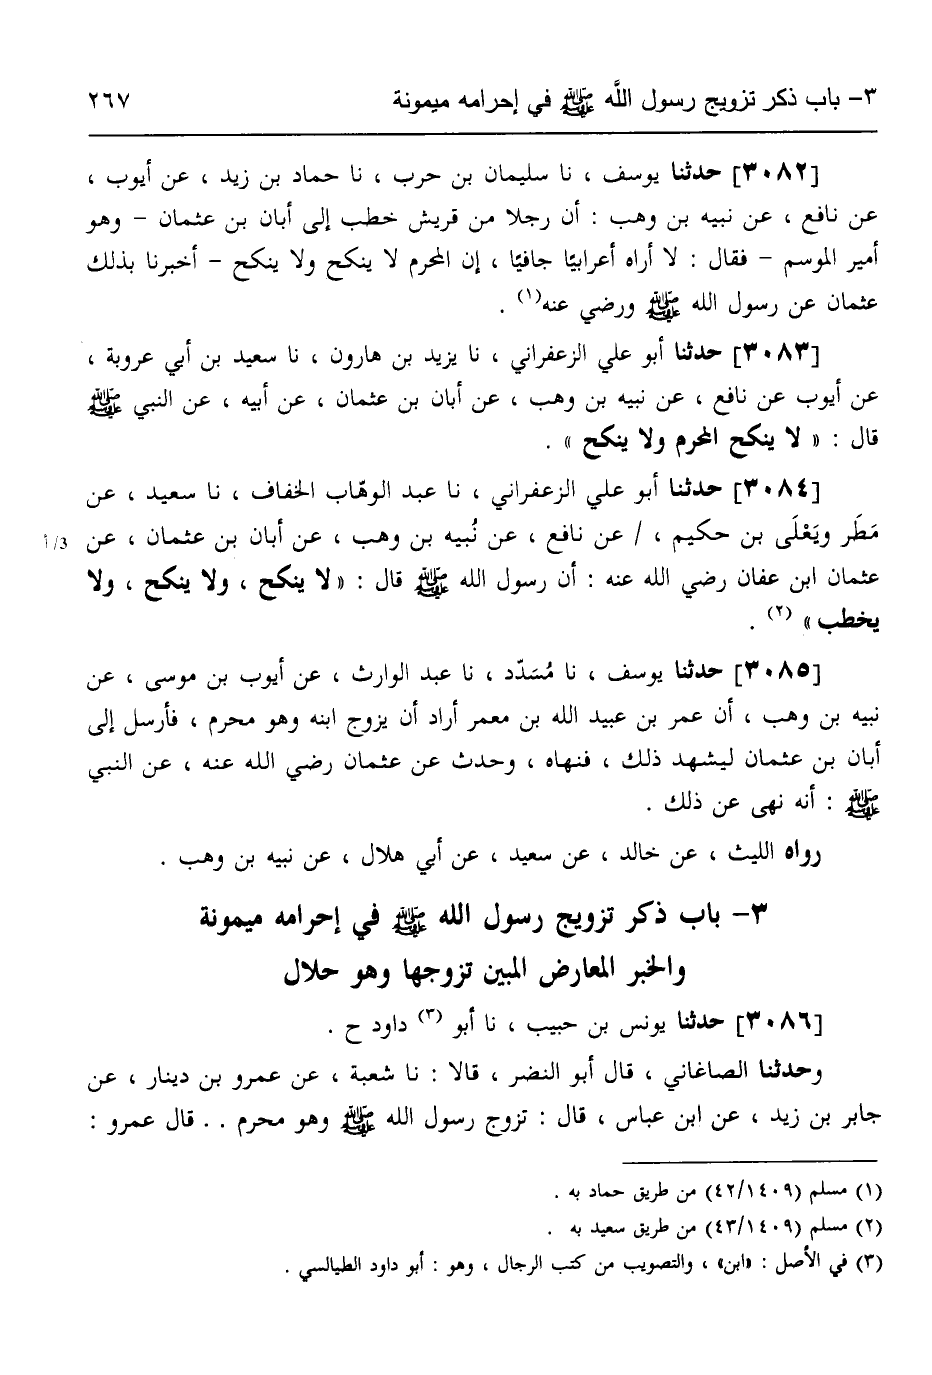 ٣- باب ذكر تزويج رسول اللَّه ﷺ في إحرامه ميمونة ٢٦٧
[٣٠٨٢] حدثنا يوسف ، نا سليمان بن حرب ، نا حماد بن زيد ، عن أيوب ،
عن نافع ، عن نبيه بن وهب : أن رجلا من قريش خطب إلى أبان بن عثمان – وهو
أمير الموسم – فقال : لا أراه أعرابيًا جافيًا ، إن المحرم لا ينكح ولا ينكح – أخبرنا بذلك
عثمان عن رسول الله ﷺ ورضي عنه(١) .
[٣٠٨٣] حدثنا أبو علي الزعفراني ، نا يزيد بن هارون ، نا سعيد بن أبي عروبة ،
عن أيوب عن نافع ، عن نبيه بن وهب ، عن أبان بن عثمان ، عن أبيه ، عن النبي ﷺ
قال : « لا ينكح المحرم ولا ينكح » .
[٣٠٨٤] حدثنا أبو علي الزعفراني ، نا عبد الوهّاب الخفاف ، نا سعيد ، عن
مَطَر ويَعْلَى بن حكيم ، / عن نافع ، عن نُبيه بن وهب ، عن أبان بن عثمان ، عن 3/أ
عثمان ابن عفان رضي الله عنه : أن رسول الله ﷺ قال : «لا ينكح ، ولا ينكح ، ولا
يخطب» (٢) .
[٣٠٨٥] حدثنا يوسف ، نا مُسَدّد ، نا عبد الوارث ، عن أيوب بن موسى ، عن
نبيه بن وهب ، أن عمر بن عبيد الله بن معمر أراد أن يزوج ابنه وهو محرم ، فأرسل إلى
أبان بن عثمان ليشهد ذلك ، فنهاه ، وحدث عن عثمان رضي الله عنه ، عن النبي
ﷺ : أنه نهى عن ذلك .
رواه الليث ، عن خالد ، عن سعيد ، عن أبي هلال ، عن نبيه بن وهب .
٣- باب ذكر تزويج رسول الله ﷺ في إحرامه ميمونة
والخبر المعارض المبين تزوجها وهو حلال
[٣٠٨٦] حدثنا يونس بن حبيب ، نا أبو (٣) داود ح .
وحدثنا الصاغاني ، قال أبو النضر ، قالا : نا شعبة ، عن عمرو بن دينار ، عن
جابر بن زيد ، عن ابن عباس ، قال : تزوج رسول الله ﷺ وهو محرم . . قال عمرو :
(١) مسلم (٤٢/١٤٠٩) من طريق حماد به .
(٢) مسلم (٤٣/١٤٠٩) من طريق سعيد به .
(٣) في الأصل : «ابن» ، والتصويب من كتب الرجال ، وهو : أبو داود الطيالسي .